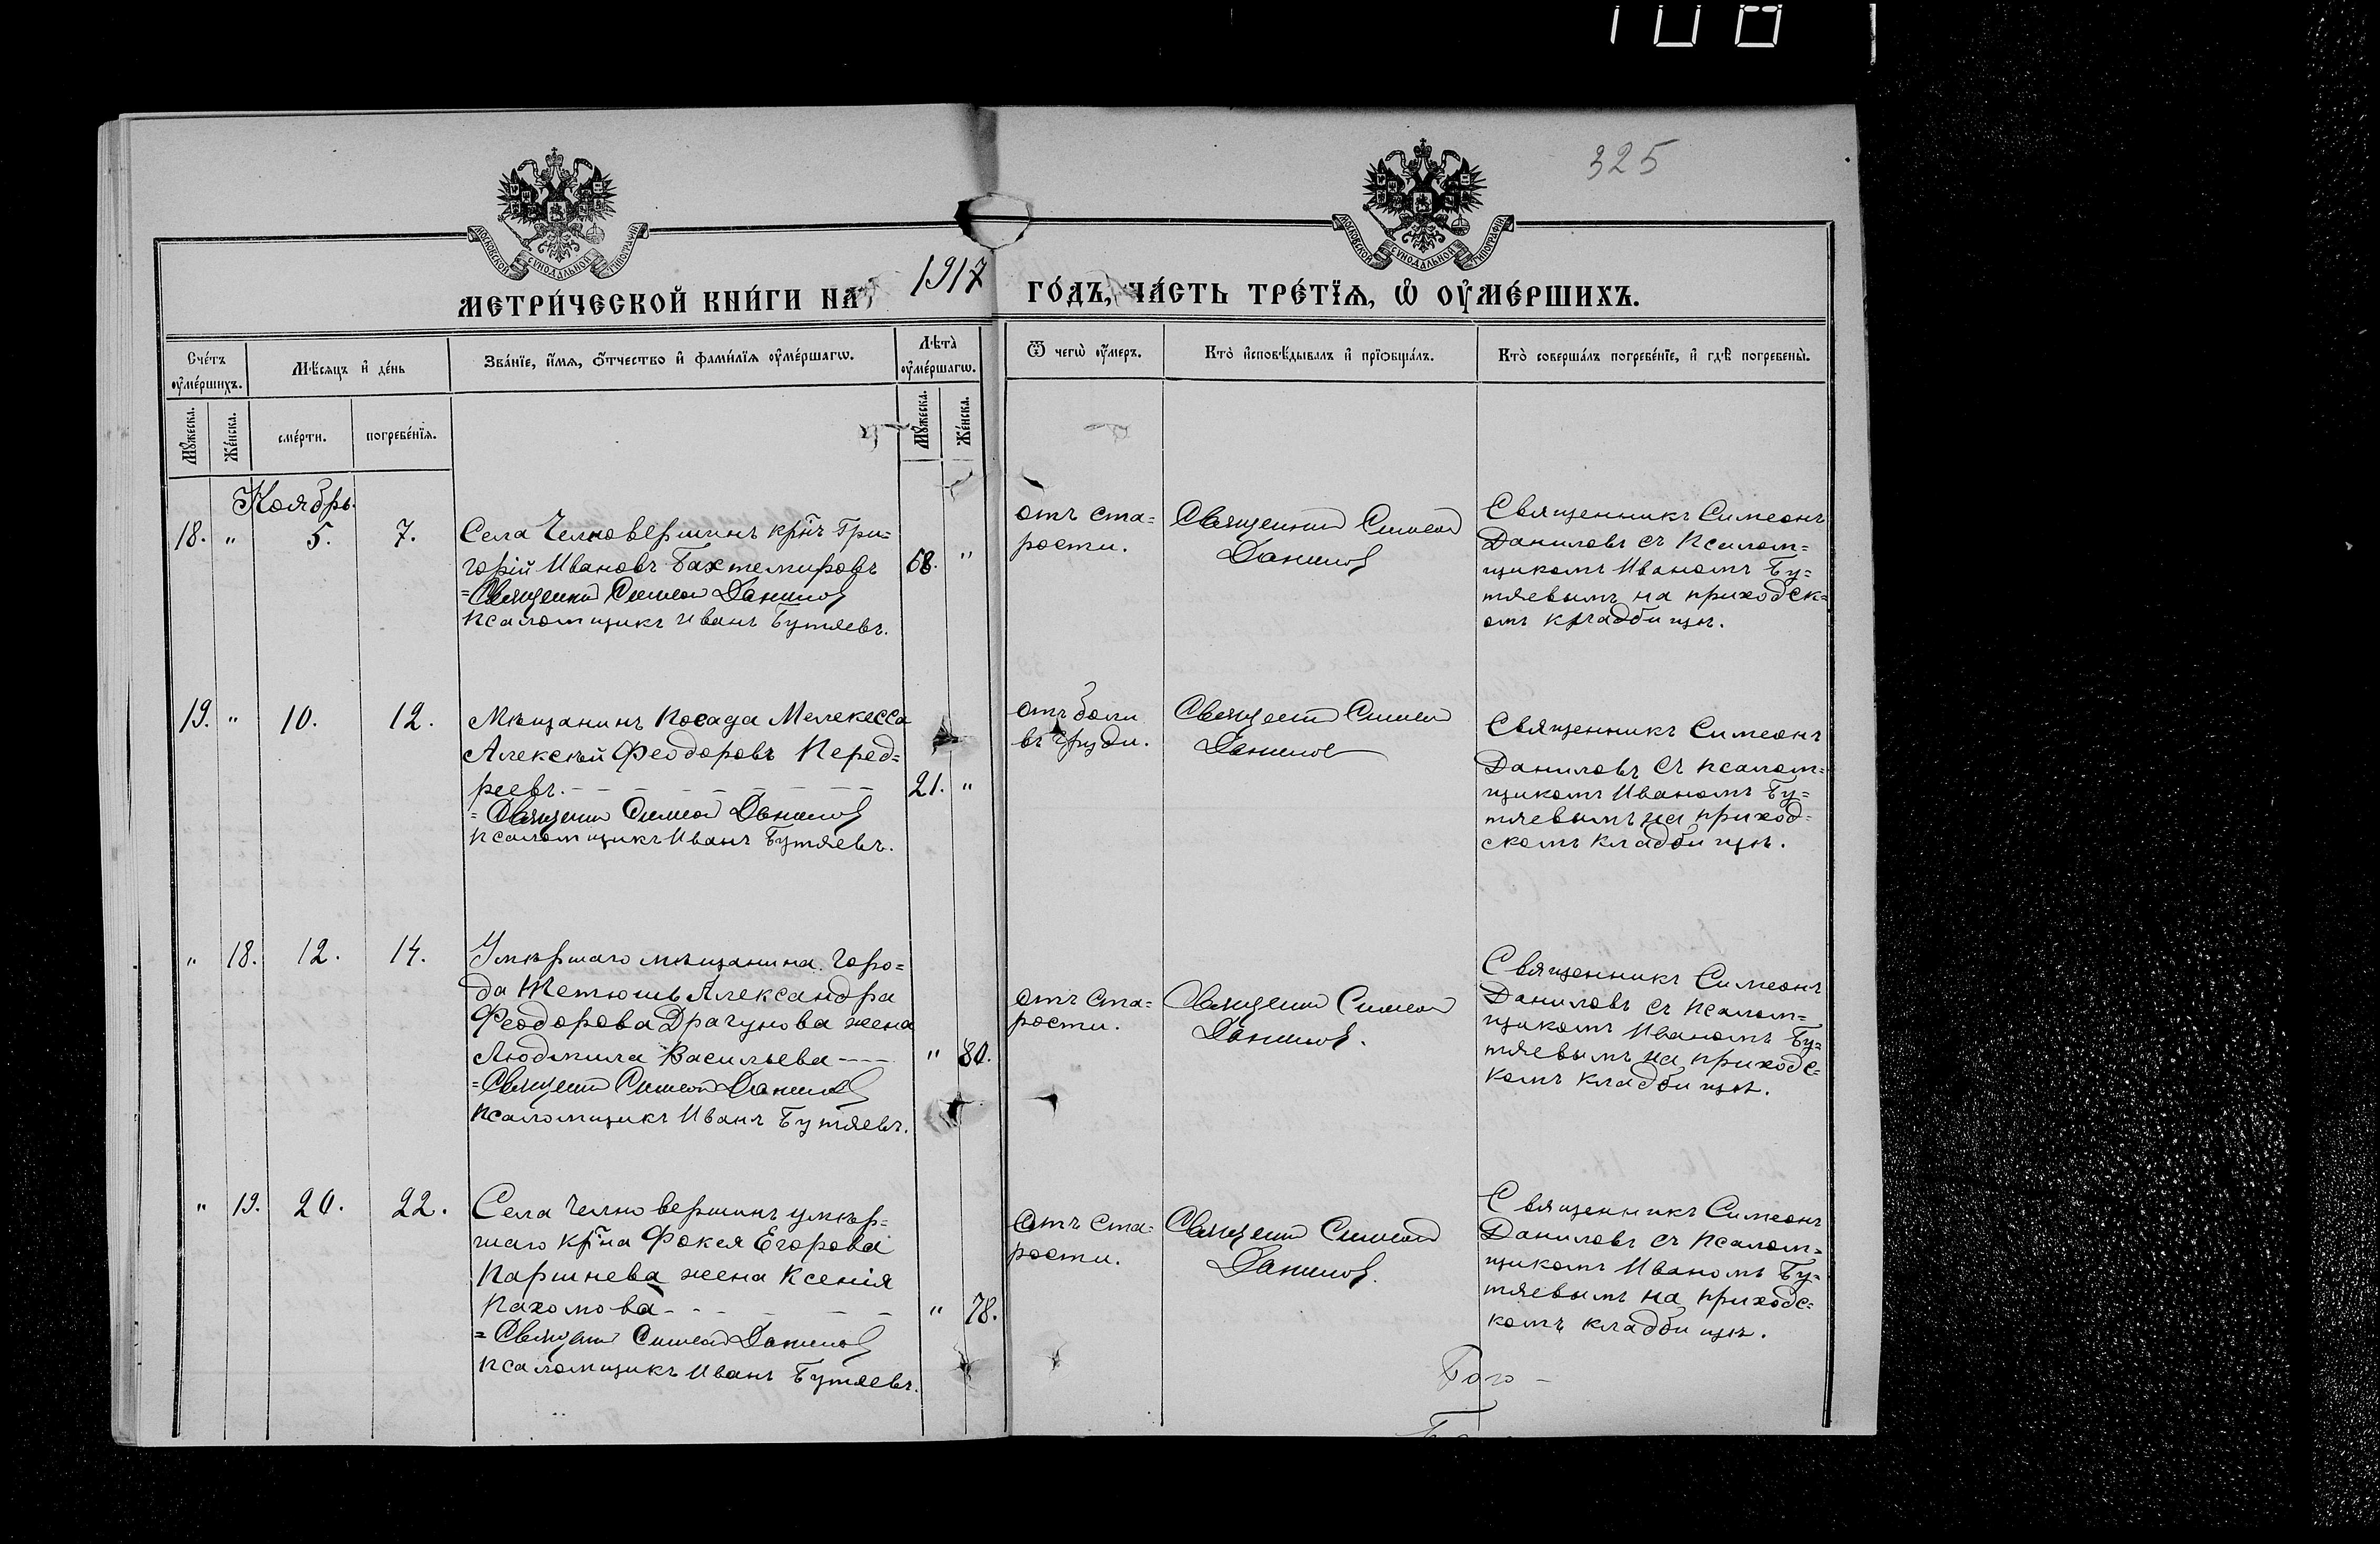 108
325
МОСКОВСКОЙ СѴНОДАЛЬНОЙ ТИПОГРАФІИ
МОСКОВСКОЙ СѴНОДАЛЬНОЙ ТИПОГРАФІИ
МЕТРИ́ЧЕСКОЙ КНИ́ГИ НА 1917 ГО́ДЪ, ЧА́СТЬ ТРЕ́ТЇѦ, Ѡ҆ ОУ҆МЕ́РШИХЪ.
Сче́тъ оу҆ме́ршихъ.
Мѣ́сяцъ и҆ де́нь
Зва́нїе, и҆́мѧ, ѻ҆́тчество и҆ фами́лїѧ оу҆ме́ршагѡ.
Лѣта̀ оу҆ме́ршагѡ.
Ѿ чегѡ̀ оу҆́меръ.
Кто̀ и҆сповѣ́дывалъ и҆ прїѡбща́лъ.
Кто̀ соверша́лъ погребе́нїе, и҆ гдѣ̀ погребены̀.
Мꙋ́жеска.
Же́нска.
сме́рти.
погребе́нїѧ.
Мꙋ́жеска.
Же́нска.
Ноябрь.
18. " 5. 7.
Села Челновершинъ крнъ Гри=
горій Ивановъ Бахтемировъ 68. "
=Священник Симеон Данилов
Псаломщикъ Иванъ Бутяевъ.
отъ ста=
рости.
Священник Симеон
Данилов
Священникъ Симеонъ
Даниловъ съ псалом=
щикомъ Иваномъ Бу=
тяевымъ на приходск=
омъ кладбищѣ.
19. " 10. 12.
Мѣщанинъ посада Мелекесса
Алексѣй Феодоровъ Перед=
реевъ. 21. "
=Священник Симеон Данилов
Псаломщикъ Иванъ Бутяевъ.
отъ боли
въ груди.
Священник Симеон
Данилов
Священникъ Симеонъ
Даниловъ съ псалом=
щикомъ Иваномъ Бу=
тяевымъ на приход=
скомъ кладбищѣ.
" 18. 12. 14.
Умѣршаго мѣщанина горо=
да Тетюшь Александра
Феодорова Драгунова жена
Людмила Васильева " 80.
=Священник Симеон Данилов
Псаломщикъ Иванъ Бутяевъ.
отъ ста=
рости.
Священник Симеон
Данилов.
Священникъ Симеонъ
Даниловъ съ псалом=
щикомъ Иваномъ Бу=
тяевымъ на приходс=
комъ кладбищѣ.
" 19. 20. 22.
Села Челновершинъ умѣр=
шаго крна Фокея Егорова
Паршнева жена Ксенія
Пахомова " 78.
=Священник Симеон Данилов
Псаломщикъ Иванъ Бутяевъ.
Отъ ста=
рости.
Священник Симеон
Данилов.
Священникъ Симеонъ
Даниловъ съ псалом=
щикомъ Иваномъ Бу=
тяевымъ на приходс=
комъ кладбищѣ.
Бого-